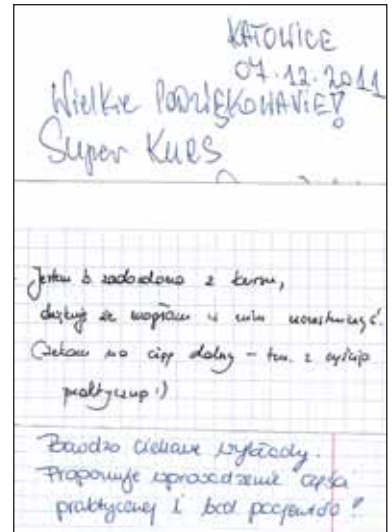 KATOWICE
07.12.2011
WIELKIE PODZIĘKOWANIE!
Super KURS
Jestem b. zadowolona z kursu,
dziękuję że mogłam w nim uczestniczyć.
Czekam na ciąg dalszy – tzn. z częścią
praktyczną :)
Bardzo ciekawe wykłady.
Proponuję wprowadzenie części
praktycznej i